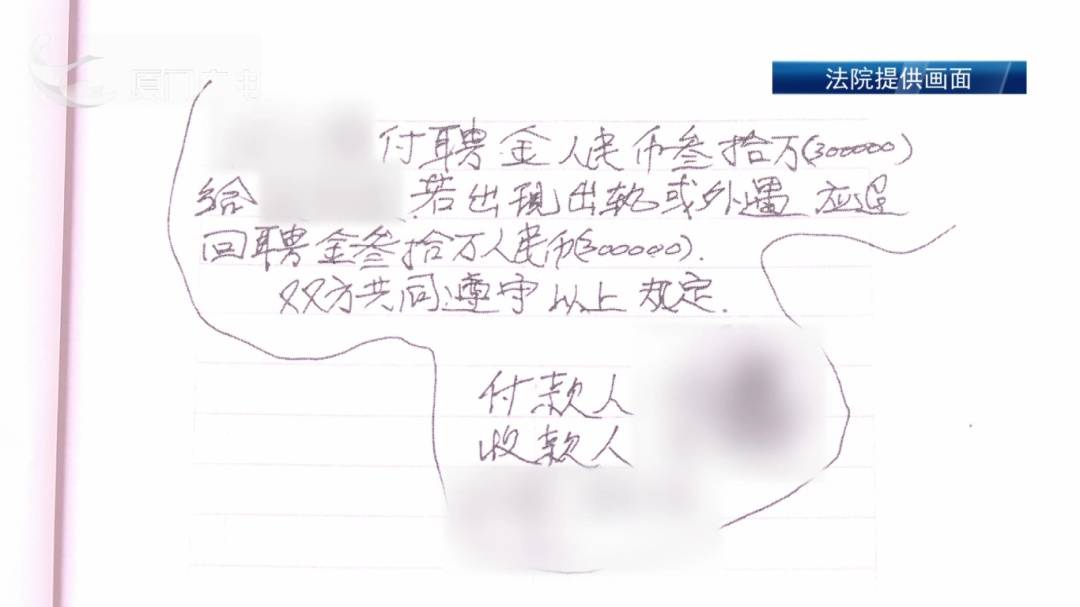 厦门广电
法院提供画面
付聘金人民币叁拾万(300000)
给 若出现出轨或外遇 应退
回聘金叁拾万人民币(300000).
双方共同遵守以上规定.
付款人
收款人